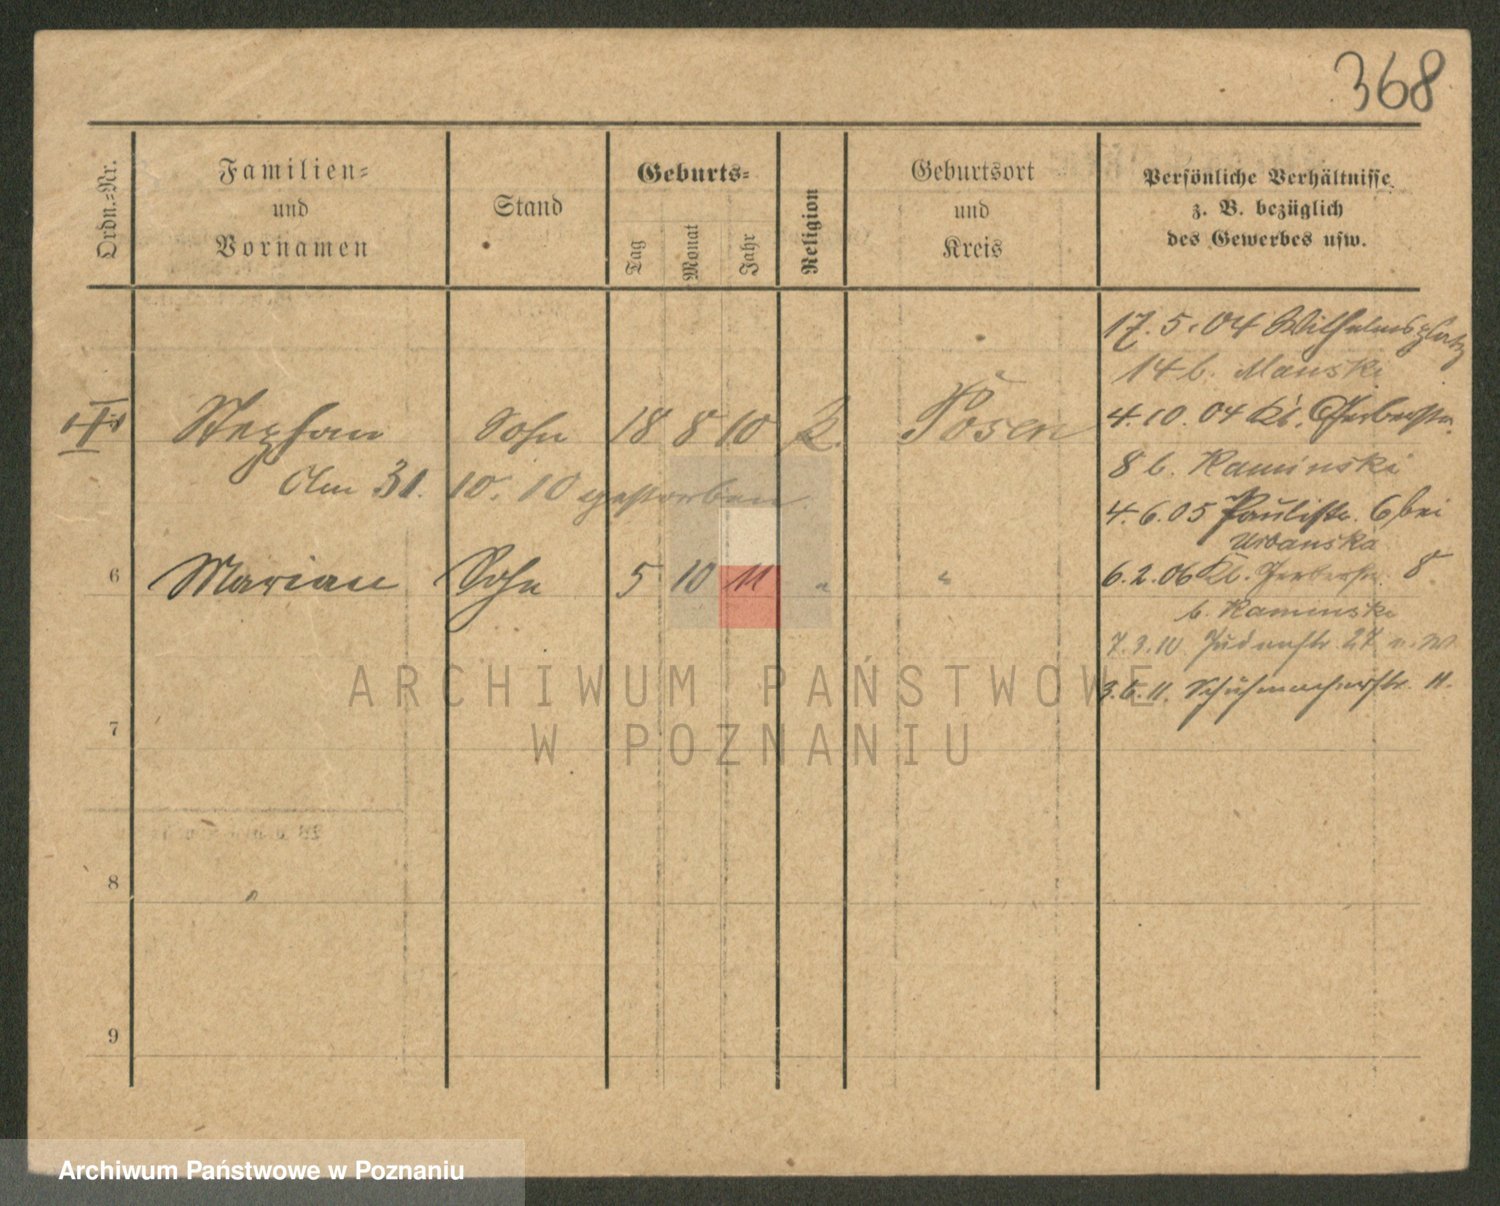 368
Ordn.-Nr.
Familien-
und
Vornamen
Stand
Geburts-
Tag
Monat
Jahr
Religion
Geburtsort
und
Kreis
Persönliche Verhältnisse
z. B. bezüglich
des Gewerbes usw.
17.5.04 Wilhelmsplatz
14 b. Manski
Stephan Sohn 18 8 10 K. Posen
4.10.04 Kl. Gerberstr.
8 b. Kaminski
Am 31. 10. 10 gestorben.
4.6.05 Paulistr. 6 bei
Urbanska
6 Marian Sohn 5 10 11 " "
6.2.06 Kl. Gerberstr. 8
b. Kaminski
7.3.10 Judenstr. 27
3.6.11. Schuhmacherstr. 11.
7
8
9
ARCHIWUM PAŃSTWOWE
W POZNANIU
Archiwum Państwowe w Poznaniu